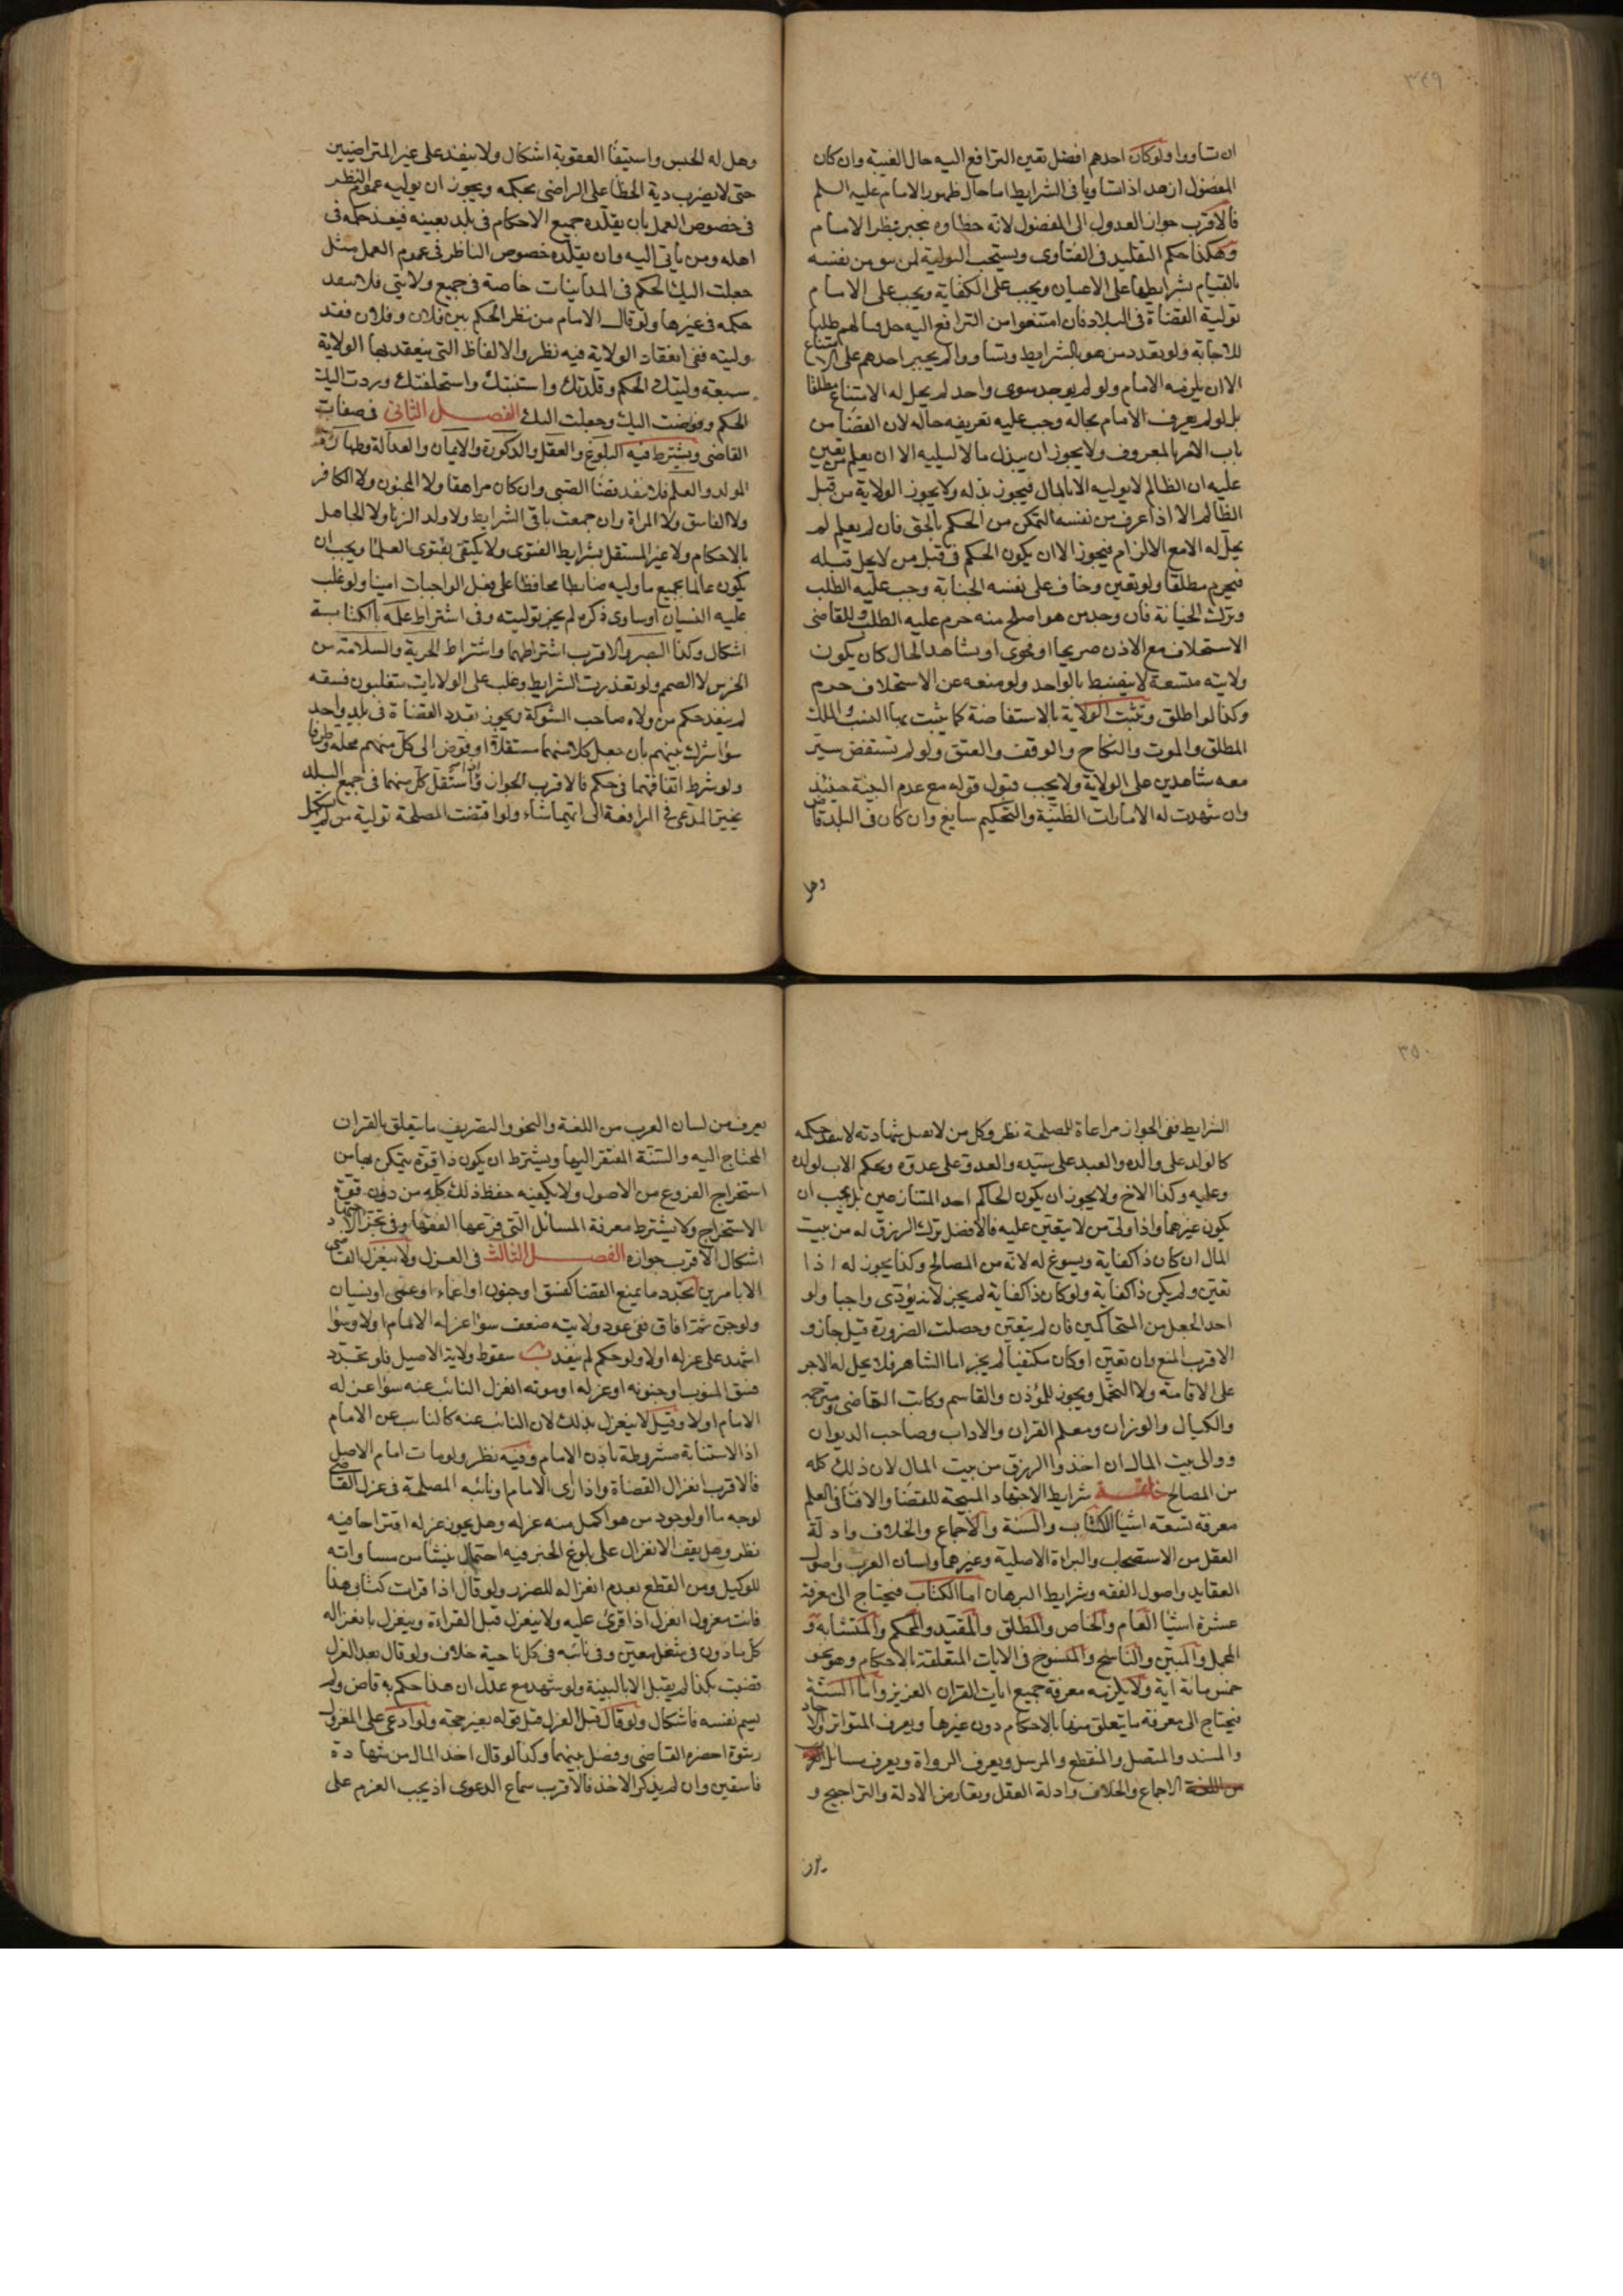 ٣٤٩
ان تساووا ولو كان احدهم افضل تعين الترافع اليه حال الغيبة وان كان
المفضول ازهد اذا تساويا في الشرايط اما حال ظهور الامام عليه السلم
فالاقرب جواز العدول الى المفضول لانه خطاوه ينجبر بنظر الامام
وهكذا حكم التقليد في الفتاوى ويستحب التولية لمن يثق من نفسه
بالقيام بشرايطها على الاعيان ويجب على الكفاية ويجب على الامام
تولية القضاة في البلاد فان امتنعوا من الترافع اليه حل قتالهم طلبا
للاجابة ولو تعدد من هو بالشرايط وتساووا لم يجبر احدهم على الامتناع
الا ان يلزمه الامام ولو لم يوجد سوى واحد لم يحل له الامتناع مطلقا
بل لو لم يعرف الامام بحاله وجب عليه تعريفه حاله لان القضا من
باب الامر بالمعروف ولا يجوز ان يبذل مالا ليليه الا ان يعلم من تعين
عليه ان الظالم لا يوليه الا بالمال فيجوز بذله ولا يجوز الولاية من قبل
الظالم الا اذا عرف من نفسه التمكن من الحكم بالحق فان لم يعلم لم
يحل له الا مع الالزام فيجوز الا ان يكون الحكم في قتل من لا يحل قتله
فيحرم مطلقا ولو تعين وخاف على نفسه الخيانة وجب عليه الطلب
وترك الخيانة فان وجد من هو اصلح منه حرم عليه الطلب وللقاضي
الاستخلاف مع الاذن صريحا او فحوى او بشاهد الحال كان يكون
ولايته متسعة لا ينضبط بالواحد ولو منعه عن الاستخلاف حرم
وكذا لو اطلق وتثبت الولاية بالاستفاضة كما يثبت بها النسب والملك
المطلق والموت والنكاح والوقف والعتق ولو لم تستفض سير
معه شاهدين على الولاية ولا يجب قبول قوله مع عدم البينة حينئذ
وان شهدت له الامارات الظنية والتحكيم سايغ وان كان في البلد قاض
وهل
وهل له الحبس واستيفا العقوبة اشكال ولا ينفذ على غير المتراضيين
حتى لا يضرب دية الخطا على الراضي بحكمه ويجوز ان يوليه عموم النظر
في خصوص العمل بان يقلده جميع الاحكام في بلد بعينه فينفذ حكمه في
اهله ومن ياتي اليه وان يقلده خصوص الناظر في عموم العمل مثل
جعلت اليك الحكم في المداينات خاصة في جميع ولايتي فلا ينفذ
حكمه في غيرها ولو قال الامام من نظر الحكم بين فلان وفلان فقد
وليته ففي انعقاد الولاية فيه نظر والالفاظ التي ينعقد بها الولاية
سبعة وليتك الحكم وقلدتك واستنبتك واستخلفتك ورددت اليك
الحكم وفوضت اليك وجعلت اليك الفصل الثاني في صفات
القاضي ويشترط فيه البلوغ والعقل والذكورة والايمان والعدالة وطهارة
المولد والعلم فلا ينفذ قضا الصبي وان كان مراهقا ولا المجنون ولا الكافر
ولا الفاسق ولا المراة وان جمعت باقي الشرايط ولا ولد الزنا ولا الجاهل
بالاحكام ولا غير المستقل بشرايط الفتوى ولا يكتفي بفتوى العلما ويجب ان
يكون عالما بجميع ما وليه ضابطا محافظا على فعل الواجبات امينا ولو غلب
عليه النسيان او ساوى ذكره لم يجز توليته وفي اشتراط علمه بالكتابة
اشكال وكذا البصر والاقرب اشتراطهما واشتراط الحرية والسلامة من
الخرس لا الصمم ولو تعذرت الشرايط وغلب على الولايات متغلبون فسقه
لم ينفذ حكم من ولاه صاحب الشوكة ويجوز تعدد القضاة في بلد واحد
سوا شرك بينهم بان جعل كلا منهما مستقلا او فوض الى كل منهم محلة وطرفا
ولو شرط اتفاقهما في حكم فالاقرب الجواز واذا استقل كل منهما في جميع البلد
تخير المدعي في المرافعة الى ايهما شاء ولو اقتضت المصلحة تولية من لم يستكمل
٣٥٠
الشرايط ففي الجواز مراعاة للمصلحة نظر وكل من لا تقبل شهادته لا ينفذ حكمه
كالولد على والده والعبد على سيده والعدو على عدوه ويحكم الاب لولده
وعليه وكذا الاخ ولا يجوز ان يكون الحاكم احد المتنازعين بل يجب ان
يكون غيرهما واذا ولي من لا يتعين عليه فالافضل ترك الرزق له من بيت
المال ان كان ذا كفاية ويسوغ له لانه من المصالح وكذا يجوز له اذا
تعين ولم يكن ذا كفاية ولو كان ذا كفاية لم يجز لانه يؤدي واجبا ولو
اخذ الجعل من المتحاكمين فان لم يتعين وحصلت الضرورة قيل جاز و
الاقرب المنع وان تعين او كان مكتفيا لم يجز اما الشاهد فلا يحل له الاجر
على الاقامة ولا التحمل ويجوز للمؤذن والقاسم وكاتب القاضي ومترجمه
والكيال والوزان ومعلم القران والاداب وصاحب الديوان
ووالي بيت المال ان اخذوا الرزق من بيت المال لان ذلك كله
من المصالح خاتمة شرايط الاجتهاد المبيحة للقضا والافتا في العلم
معرفة تسعة اشيا الكتاب والسنة والاجماع والخلاف وادلة
العقل من الاستصحاب والبراءة الاصلية وغيرهما ولسان العرب واصول
العقايد واصول الفقه وشرايط البرهان اما الكتاب فيحتاج الى معرفة
عشرة اشيا العام والخاص والمطلق والمقيد والمحكم والمتشابه و
المجمل والمبين والناسخ والمنسوخ في الايات المتعلقة بالاحكام وهو نحو
خمس مائة اية ولا يلزمه معرفة جميع ايات القران العزيز واما السنة
فيحتاج الى معرفة ما يتعلق منها بالاحكام دون غيرها ويعرف المتواتر والاحاد
والمسند والمتصل والمنقطع والمرسل ويعرف الرواة ويعرف مسائل
الاجماع والخلاف وادلة العقل وتعارض الادلة والتراجيح و
يعرف من لسان العرب من اللغة والنحو والتصريف ما يتعلق بالقران
المحتاج اليه والسنة المفتقر اليها ويشترط ان يكون ذا قوة يتمكن بها من
استخراج الفروع من الاصول ولا يكفيه حفظ ذلك كله من دون قوة
الاستخراج ولا يشترط معرفة المسائل التي فرعها الفقها وفي تجزي الاجتهاد
اشكال الاقرب جوازه الفصل الثالث في العزل ولا ينعزل القاضي
الا بامرين تجدد ما يمنع القضا كفسق او جنون او اغماء او عمى او نسيان
ولو جن ثم افاق ففي عود ولايته ضعف سوا عزله الامام او لا وسوا
اشهد على عزله او لا ولو حكم لم ينفذ ب سقوط ولاية الاصيل فلو تجدد
فسق المنوب او جنونه او عزله او موته انعزل النائب عنه سوا عزله
الامام او لا وقيل لا ينعزل بذلك لان النائب عنه كالنائب عن الامام
اذ الاستنابة مشروطة باذن الامام وفيه نظر ولو مات امام الاصل
فالاقرب انعزال القضاة واذا راى الامام او نائبه المصلحة في عزل القاضي
لوجه ما او لوجود من هو اكمل منه عزله وهل يجوز عزله اقتراحا فيه
نظر وهل يقف الانعزال على بلوغ الخبر فيه احتمال ينشا من مساواته
للوكيل ومن القطع بعدم انعزاله للضرر ولو قال اذا قرات كتابي هذا
فانت معزول انعزل اذا قرئ عليه ولا ينعزل قبل القراءة وينعزل بانعزاله
كل ماذون في شغل معين وفي نائبه في كل ناحية خلاف ولو قال بعد العزل
قضيت بكذا لم يقبل الا بالبينة ولو شهد مع عدل ان هذا حكم به قاض ولم
يسم نفسه فاشكال ولو قال قبل العزل قبل قوله بغير حجة ولو ادعى على المعزول
رشوة احضره القاضي وفصل بينهما وكذا لو قال اخذ المال من شهادة
فاسقين وان لم يذكر الاخذ فالاقرب سماع الدعوى اذ يجب الغرم على